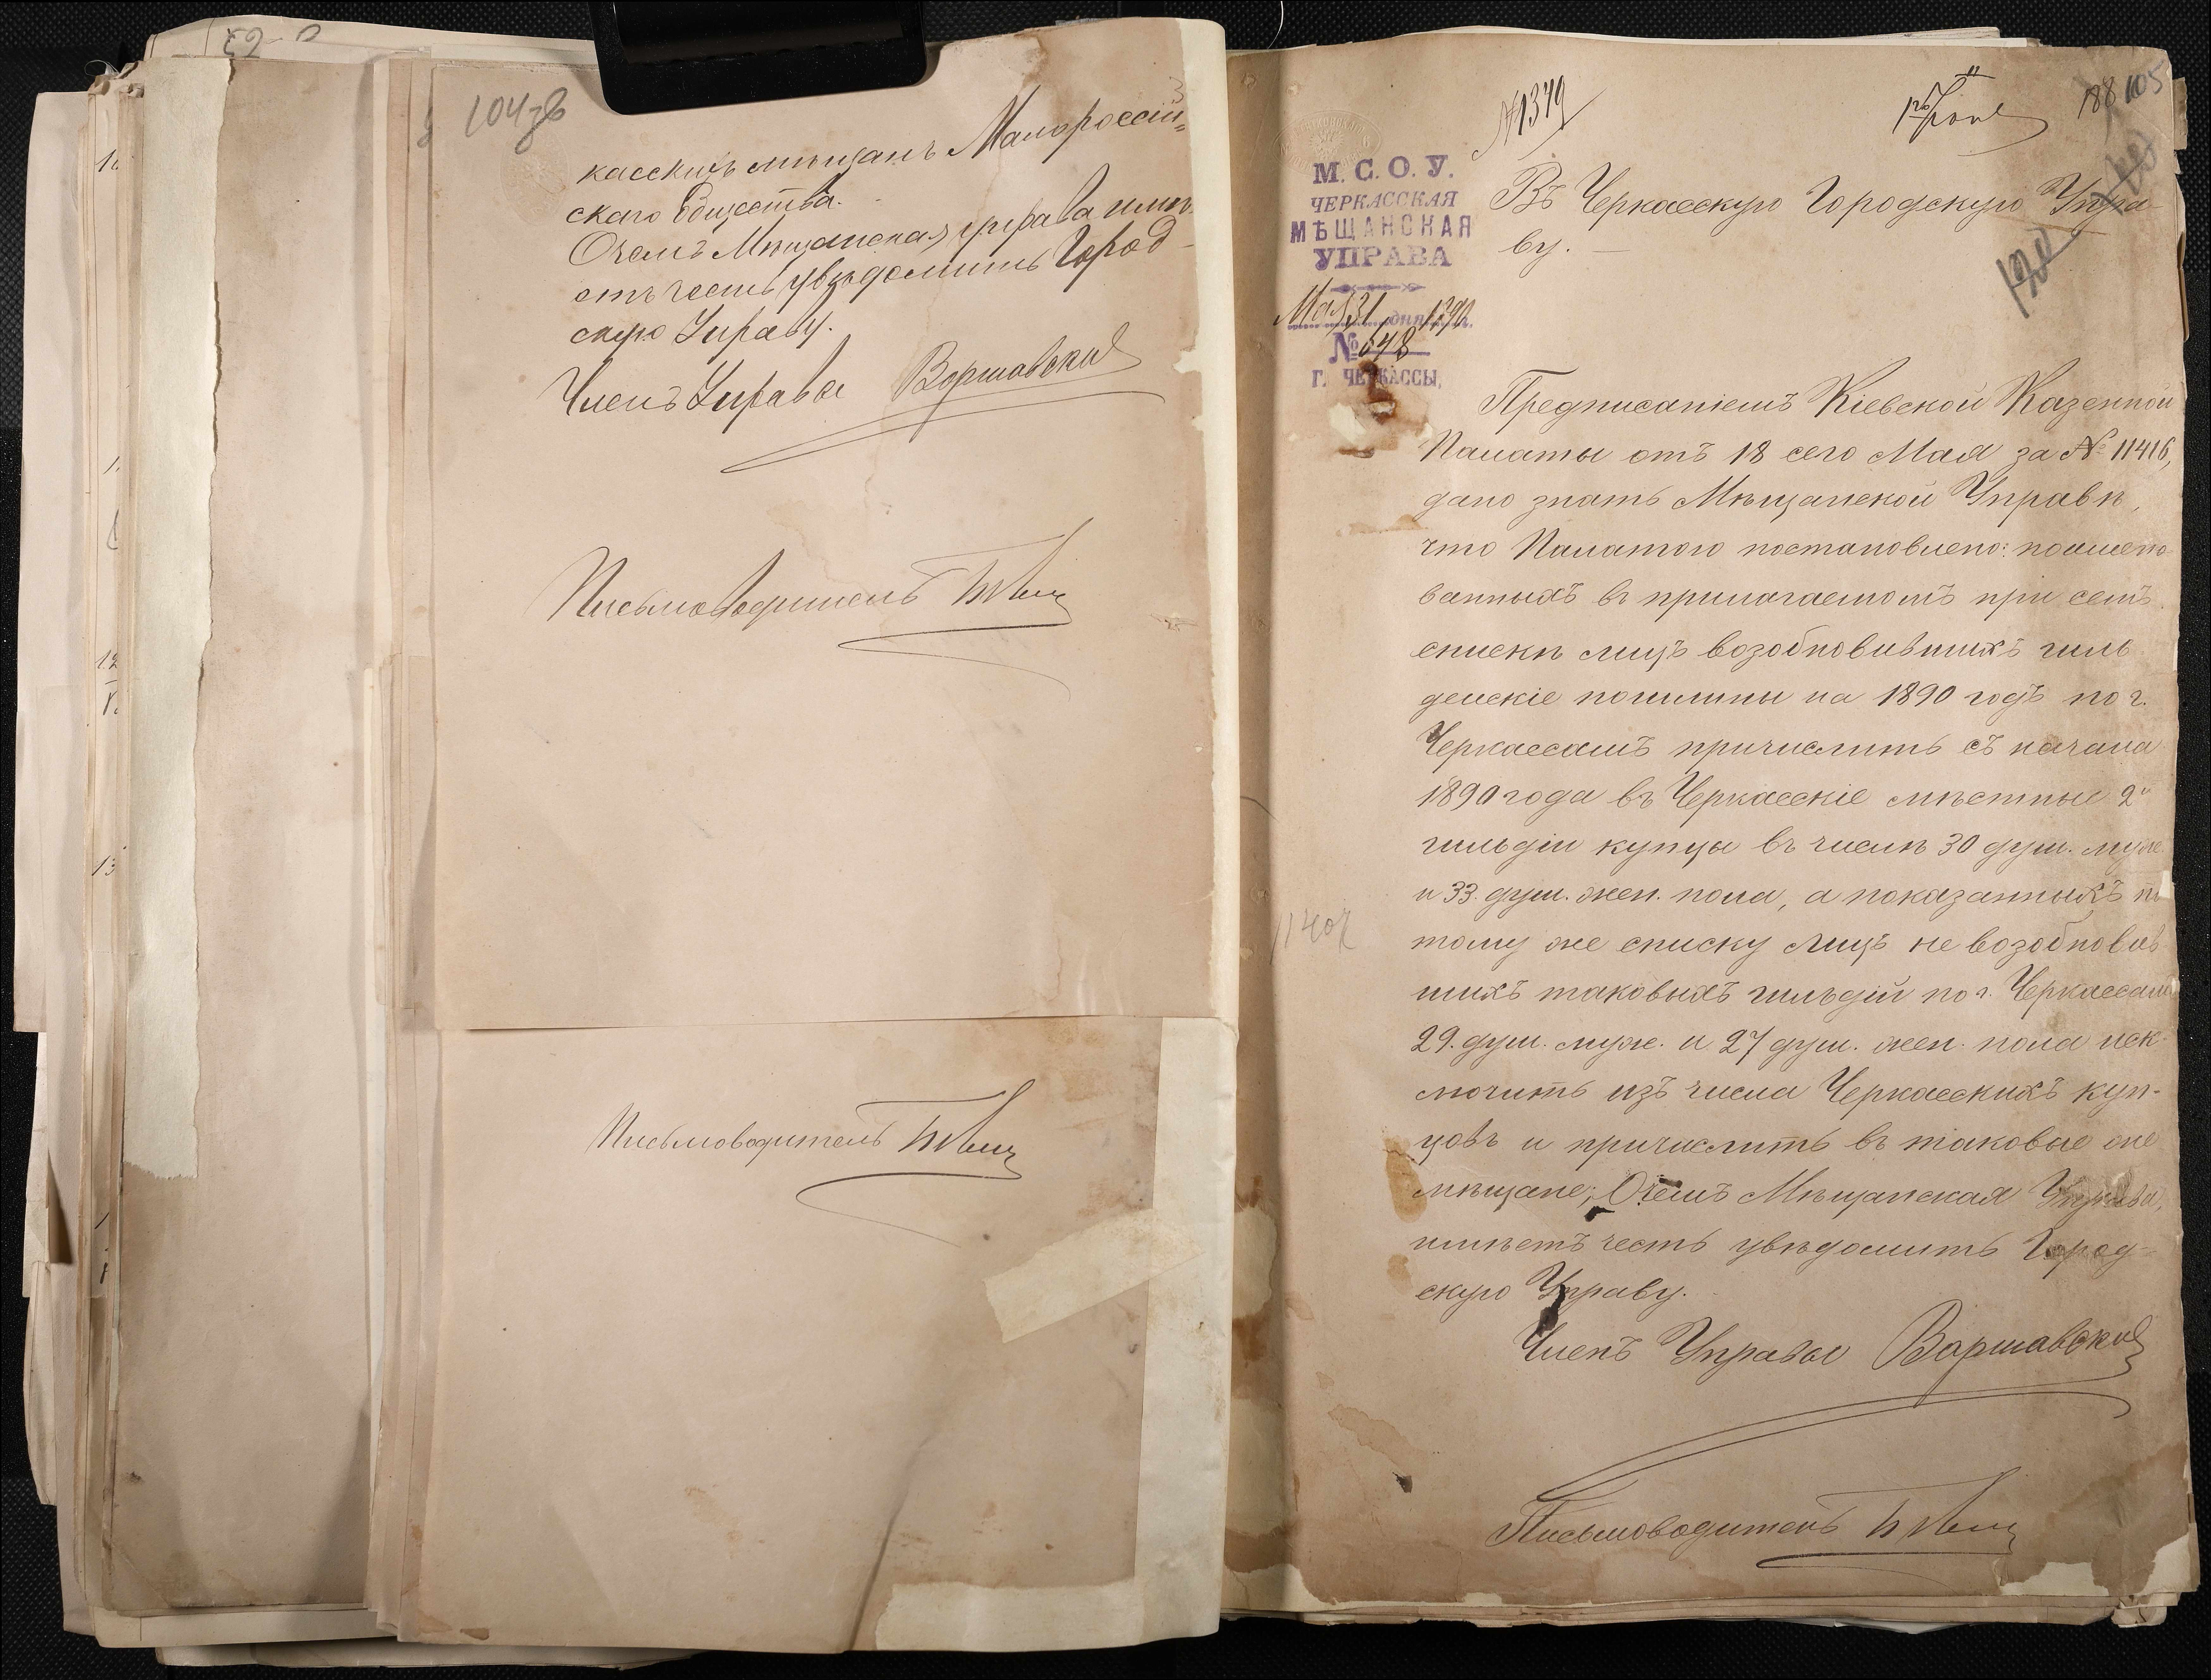 104 зв
касскихъ мѣщанъ Малороссій=
скаго Общества.
О чемъ Мѣщанская управа имѣ-
етъ честь увѣдомить Город-
скую Управу.
Членъ Управы Варшавскій
Письмоводитель
Письмоводитель
№ 1379
188 105
М. С. О. У.
ЧЕРКАССКАЯ
МѢЩАНСКАЯ
УПРАВА
Мая 31 дня 1890 г.
№ 548
Г. ЧЕРКАССЫ,
Въ Черкасскую Городскую Упра-
ву. —
Предписаніемъ Кіевской Казенной
Палаты отъ 18 сего Мая за № 11416,
дано знать Мѣщанской Управѣ,
что Палатою постановлено: поимено
ванныхъ въ прилагаемомъ при семъ
спискѣ лицъ возобновившихъ гиль
дейскіе пошлины на 1890 годъ по г.
Черкассамъ причислить съ начала
1890 года въ Черкасскіе мѣстные 2й
гильдіи купцы въ числѣ 30 душ. муж.
и 33. душ. жен. пола, а показанныхъ по
тому же списку лицъ не возобновив
шихъ таковыхъ гильдій по г. Черкассамъ
29. душ. муж. и 27 душ. жен. пола иск-
лючить изъ числа Черкасскихъ куп-
цовъ и причислить въ таковые же
мѣщане; О чемъ Мѣщанская Управа,
имѣетъ честь увѣдомить Город-
скую Управу.
Членъ Управы Варшавскій
Письмоводитель